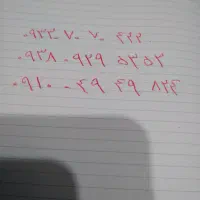 ۰۹۳۳۰ ۷۰ ۷۰ ۴۲۲
۰۹۳۸ ۰۹۲۹ ۵۳۵۳
۰۹۱۰ ۰۴۹ ۴۹ ۸۲۴